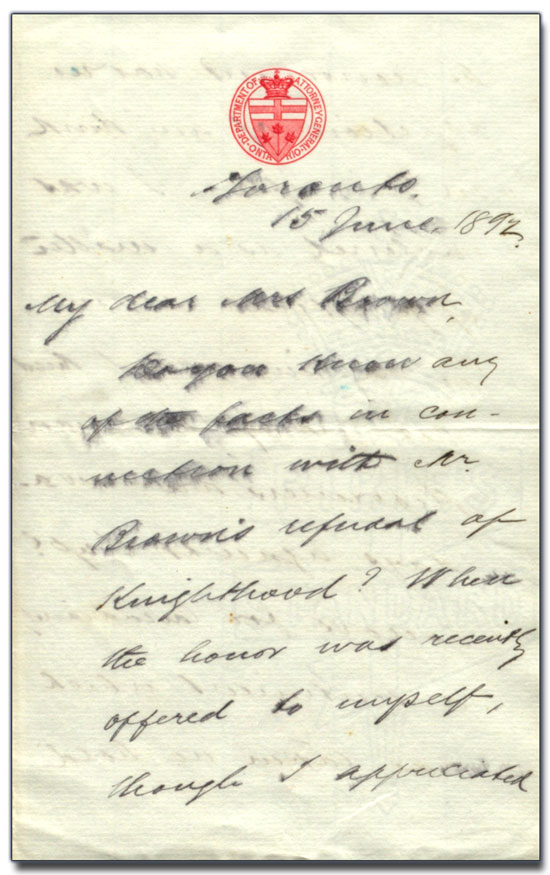 DEPARTMENT OF ATTORNEY GENERAL
Toronto.
15 June. 1892.
My dear Mrs Brown,
Do you know any
of the facts in con-
nection with Mr
Brown's refusal of
Knighthood? When
the honor was recently
offered to myself,
though I appreciated